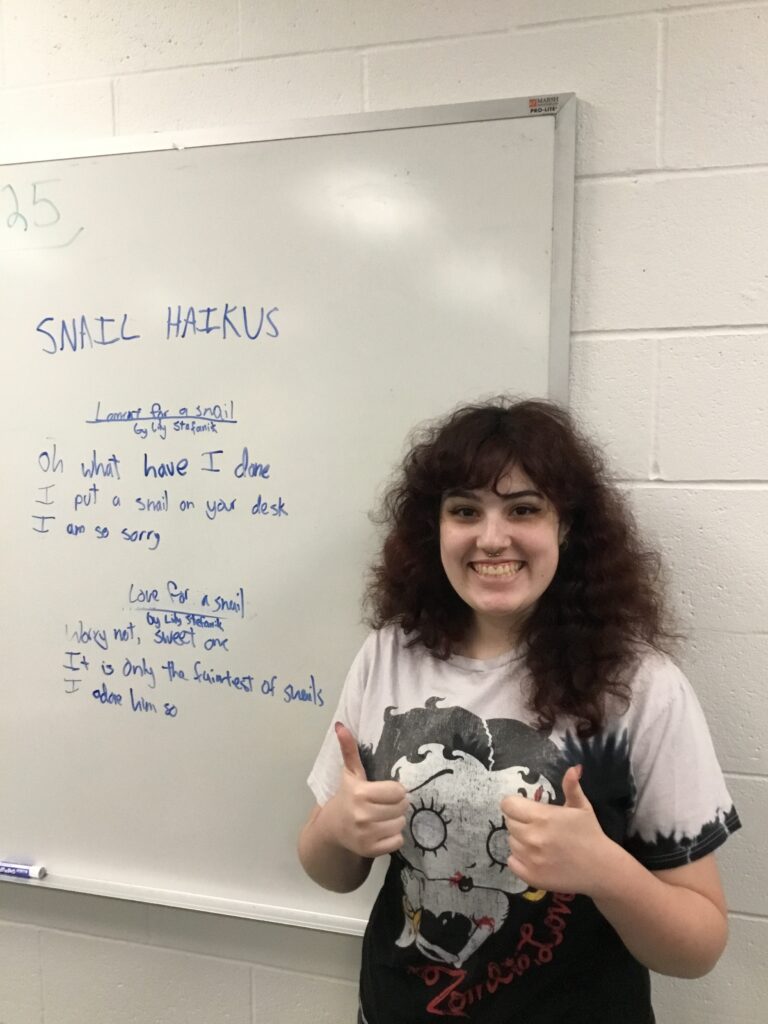 MARSH
PRO-LITE
25
SNAIL HAIKUS
Lament for a snail
by Lily Stefanik
Oh what have I done
I put a snail on your desk
I am so sorry
Love for a snail
by Lily Stefanik
Worry not, sweet one
It is only the faintest of snails
I adore him so
Zombie Love